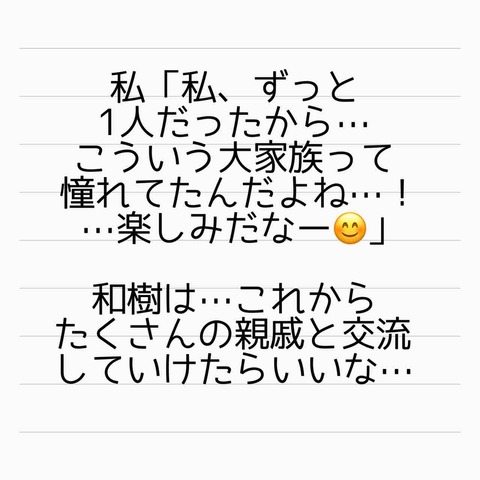 私「私、ずっと
1人だったから…
こういう大家族って
憧れてたんだよね…！
…楽しみだなー😊」
和樹は…これから
たくさんの親戚と交流
していけたらいいな…